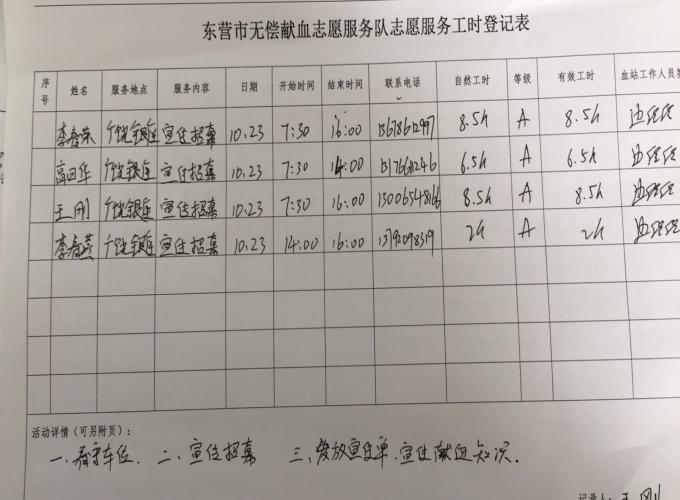 东营市无偿献血志愿服务队志愿服务工时登记表
序号 姓名 服务地点 服务内容 日期 开始时间 结束时间 联系电话 自然工时 等级 有效工时 血站工作人员签
李春荣 广饶银座 宣传招募 10.23 7:30 16:00 8.5h A 8.5h
高田华 广饶银座 宣传招募 10.23 7:30 14:00 6.5h A 6.5h
王刚 广饶银座 宣传招募 10.23 7:30 16:00 8.5h A 8.5h
李春燕 广饶银座 宣传招募 10.23 14:00 16:00 2h A 2h
活动详情（可另附页）：
一、看守车位、二、宣传招募 三、发放宣传单、宣传献血知识.
记录人: 王刚